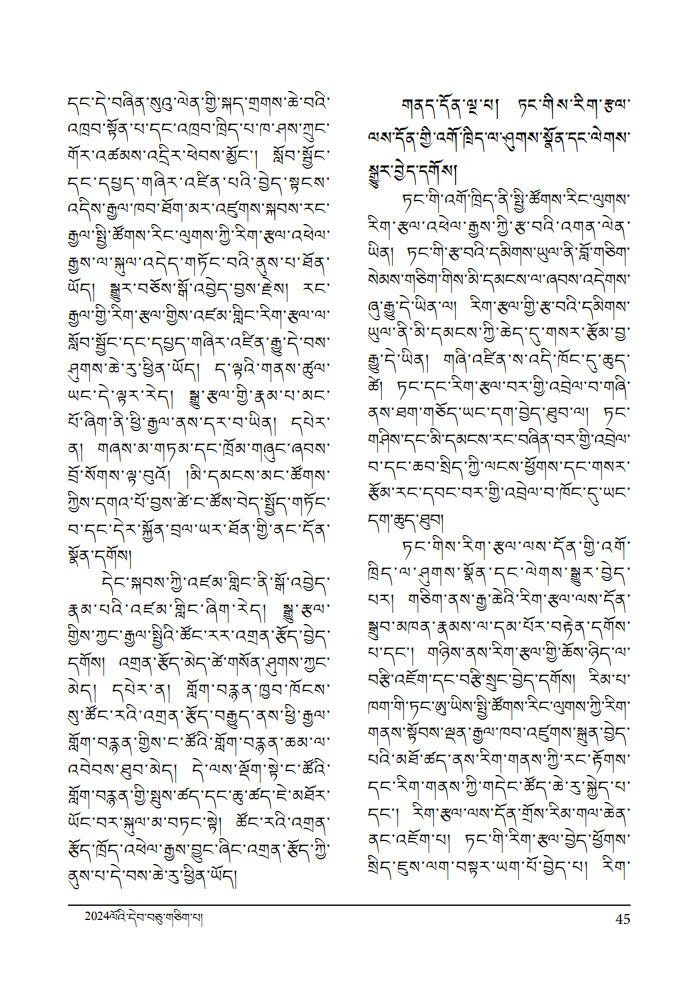 དང་དེ་བཞིན་སུའུ་ལེན་གྱི་སྐད་གྲགས་ཆེ་བའི་
འཁྲབ་སྟོན་པ་དང་འཁྲབ་ཁྲིད་པ་ཁ་ཤས་ཀྲུང་
གོར་འཚམས་འདྲིར་ཕེབས་མྱོང་། སློབ་སྦྱོང་
དང་དཔྱད་གཞིར་འཛིན་པའི་བྱེད་སྟངས་
འདིས་རྒྱལ་ཁབ་ཐོག་མར་འཛུགས་སྐབས་རང་
རྒྱལ་སྤྱི་ཚོགས་རིང་ལུགས་ཀྱི་རིག་རྩལ་འཕེལ་
རྒྱས་ལ་སྐུལ་འདེད་གཏོང་བའི་ནུས་པ་ཐོན་
ཡོད། སྒྱུར་བཅོས་སྒོ་འབྱེད་བྱས་རྗེས། རང་
རྒྱལ་གྱི་རིག་རྩལ་གྱིས་འཛམ་གླིང་རིག་རྩལ་ལ་
སློབ་སྦྱོང་དང་དཔྱད་གཞིར་འཛིན་རྒྱུ་དེ་བས་
ཤུགས་ཆེ་རུ་ཕྱིན་ཡོད། ད་ལྟའི་གནས་ཚུལ་
ཡང་དེ་ལྟར་རེད། སྒྱུ་རྩལ་གྱི་རྣམ་པ་མང་
པོ་ཞིག་ནི་ཕྱི་རྒྱལ་ནས་དར་བ་ཡིན། དཔེར་
ན། གཞས་མ་གཏམ་དང་ཁྲོམ་གཞུང་ཞབས་
བྲོ་སོགས་ལྟ་བུའོ། །མི་དམངས་མང་ཚོགས་
ཀྱིས་དགའ་པོ་བྱས་ཚེ་ང་ཚོས་བེད་སྤྱོད་གཏོང་
བ་དང་དེར་སྐྱོན་བྲལ་ཡར་ཐོན་གྱི་ནང་དོན་
སྣོན་དགོས།
དེང་སྐབས་ཀྱི་འཛམ་གླིང་ནི་སྒོ་འབྱེད་
རྣམ་པའི་འཛམ་གླིང་ཞིག་རེད། སྒྱུ་རྩལ་
གྱིས་ཀྱང་རྒྱལ་སྤྱིའི་ཚོང་རར་འགྲན་རྩོད་བྱེད་
དགོས། འགྲན་རྩོད་མེད་ཚེ་གསོན་ཤུགས་ཀྱང་
མེད། དཔེར་ན། གློག་བརྙན་ཁྱབ་ཁོངས་
སུ་ཚོང་རའི་འགྲན་རྩོད་བརྒྱུད་ནས་ཕྱི་རྒྱལ་
གློག་བརྙན་གྱིས་ང་ཚོའི་གློག་བརྙན་ཆམ་ལ་
འབེབས་ཐུབ་མེད། དེ་ལས་ལྡོག་སྟེ་ང་ཚོའི་
གློག་བརྙན་གྱི་སྤུས་ཚད་དང་ཆུ་ཚད་ཇེ་མཐོར་
ཡོང་བར་སྐུལ་མ་བཏང་སྟེ། ཚོང་རའི་འགྲན་
རྩོད་ཁྲོད་འཕེལ་རྒྱས་བྱུང་ཞིང་འགྲན་རྩོད་ཀྱི་
ནུས་པ་དེ་བས་ཆེ་རུ་ཕྱིན་ཡོད།
གནད་དོན་ལྔ་པ། ཏང་གིས་རིག་རྩལ་
ལས་དོན་གྱི་འགོ་ཁྲིད་ལ་ཤུགས་སྣོན་དང་ལེགས་
སྒྱུར་བྱེད་དགོས།
ཏང་གི་འགོ་ཁྲིད་ནི་སྤྱི་ཚོགས་རིང་ལུགས་
རིག་རྩལ་འཕེལ་རྒྱས་ཀྱི་རྩ་བའི་འགན་ལེན་
ཡིན། ཏང་གི་རྩ་བའི་དམིགས་ཡུལ་ནི་བློ་གཅིག་
སེམས་གཅིག་གིས་མི་དམངས་ལ་ཞབས་འདེགས་
ཞུ་རྒྱུ་དེ་ཡིན་ལ། རིག་རྩལ་གྱི་རྩ་བའི་དམིགས་
ཡུལ་ནི་མི་དམངས་ཀྱི་ཆེད་དུ་གསར་རྩོམ་བྱ་
རྒྱུ་དེ་ཡིན། གཞི་འཛིན་ས་འདི་ཁོང་དུ་ཆུད་
ཚེ། ཏང་དང་རིག་རྩལ་བར་གྱི་འབྲེལ་བ་གཞི་
ནས་ཐག་གཅོད་ཡང་དག་བྱེད་ཐུབ་ལ། ཏང་
གཤིས་དང་མི་དམངས་རང་བཞིན་བར་གྱི་འབྲེལ་
བ་དང་ཆབ་སྲིད་ཀྱི་ལངས་ཕྱོགས་དང་གསར་
རྩོམ་རང་དབང་བར་གྱི་འབྲེལ་བ་ཁོང་དུ་ཡང་
དག་ཆུད་ཐུབ།
ཏང་གིས་རིག་རྩལ་ལས་དོན་གྱི་འགོ་
ཁྲིད་ལ་ཤུགས་སྣོན་དང་ལེགས་སྒྱུར་བྱེད་
པར། གཅིག་ནས་རྒྱ་ཆེའི་རིག་རྩལ་ལས་དོན་
སྒྲུབ་མཁན་རྣམས་ལ་དམ་པོར་བརྟེན་དགོས་
པ་དང་། གཉིས་ནས་རིག་རྩལ་གྱི་ཆོས་ཉིད་ལ་
བརྩི་འཇོག་དང་བརྩི་སྲུང་བྱེད་དགོས། རིམ་པ་
ཁག་གི་ཏང་ཨུ་ཡིས་སྤྱི་ཚོགས་རིང་ལུགས་ཀྱི་རིག་
གནས་སྟོབས་ལྡན་རྒྱལ་ཁབ་འཛུགས་སྐྲུན་བྱེད་
པའི་མཐོ་ཚད་ནས་རིག་གནས་ཀྱི་རང་རྟོགས་
དང་རིག་གནས་ཀྱི་གདེང་ཚོད་ཆེ་རུ་སྐྱེད་པ་
དང་། རིག་རྩལ་ལས་དོན་གྲོས་རིམ་གལ་ཆེན་
ནང་འཇོག་པ། ཏང་གི་རིག་རྩལ་བྱེད་ཕྱོགས་
སྲིད་ཇུས་ལག་བསྟར་ཡག་པོ་བྱེད་པ། རིག་
2024ལོའི་དེབ་བཅུ་གཅིག་པ།
45